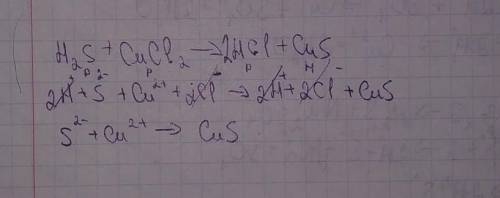 H₂S + CuCl₂ → 2HCl + CuS
р р р н
2H⁺ + S²⁻ + Cu²⁺ + 2Cl⁻ → 2H⁺ + 2Cl⁻ + CuS
S²⁻ + Cu²⁺ → CuS